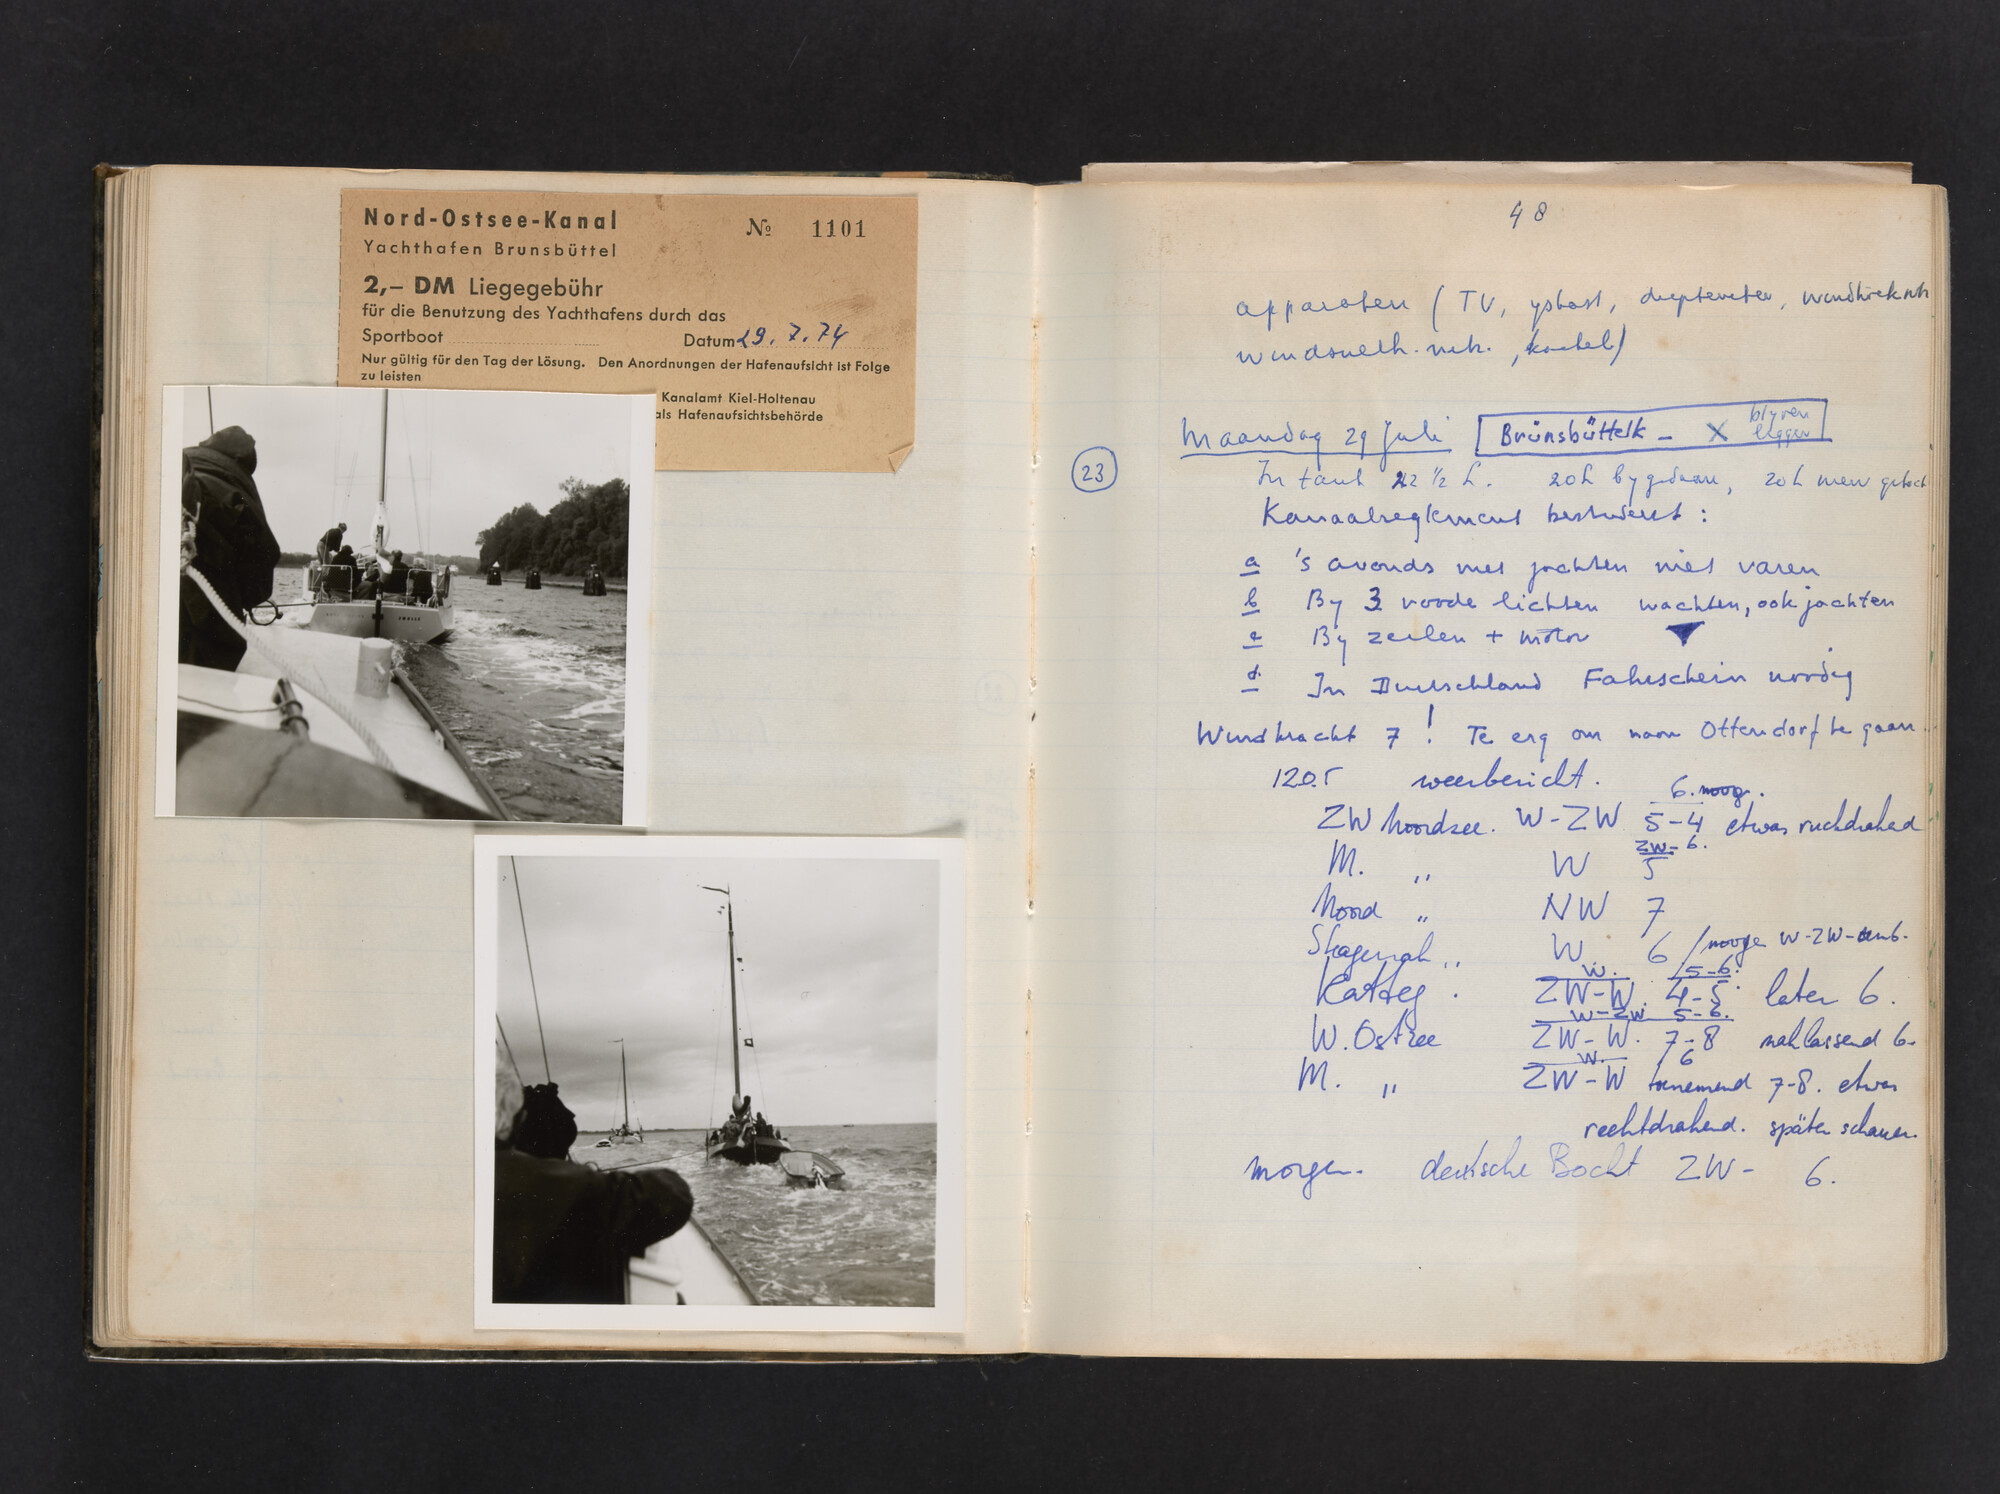 Nord-Ostsee-Kanal
Yachthafen Brunsbüttel
№ 1101
2,— DM Liegegebühr
für die Benutzung des Yachthafens durch das
Sportboot Datum 29.7.74
Nur gültig für den Tag der Lösung. Den Anordnungen der Hafenaufsicht ist Folge
zu leisten
Kanalamt Kiel-Holtenau
als Hafenaufsichtsbehörde
ZWOLLE
48
apparaten (TV, yskast, dieptemeter,
Maandag 29 Juli Brünsbüttelk - X blyven
liggen
23
In tank 22 1/2 L. 20 L bygedaan, 20 L
Kanaalreglement bestudeert:
a 's avonds met jachten niet varen
b By 3 roode lichten wachten, ook jachten
c By zeilen + motor ▼
d. In Deutschland Fahrschein noodig
Windkracht 7! Te erg om naar Ottendorf te gaan.
1205 weerbericht.
6. morg.
ZW Noordzee. W-ZW 5-4 etwas ruckdrahend
ZW- 6.
M. ,, W 5
Noord ,, NW 7
Skagerrak ,, W. 6 /morgen W-ZW-
W. 5-6.
Katteg. ZW-W. 4-5 later 6.
W-ZW 5-6.
W. Ostzee ZW-W. 7-8 nachlassend 6.
W. 6
M. ,, ZW-W toenemend 7-8. etwas
rechtdrahend. später schauer.
morgen. deutsche Bocht ZW- 6.